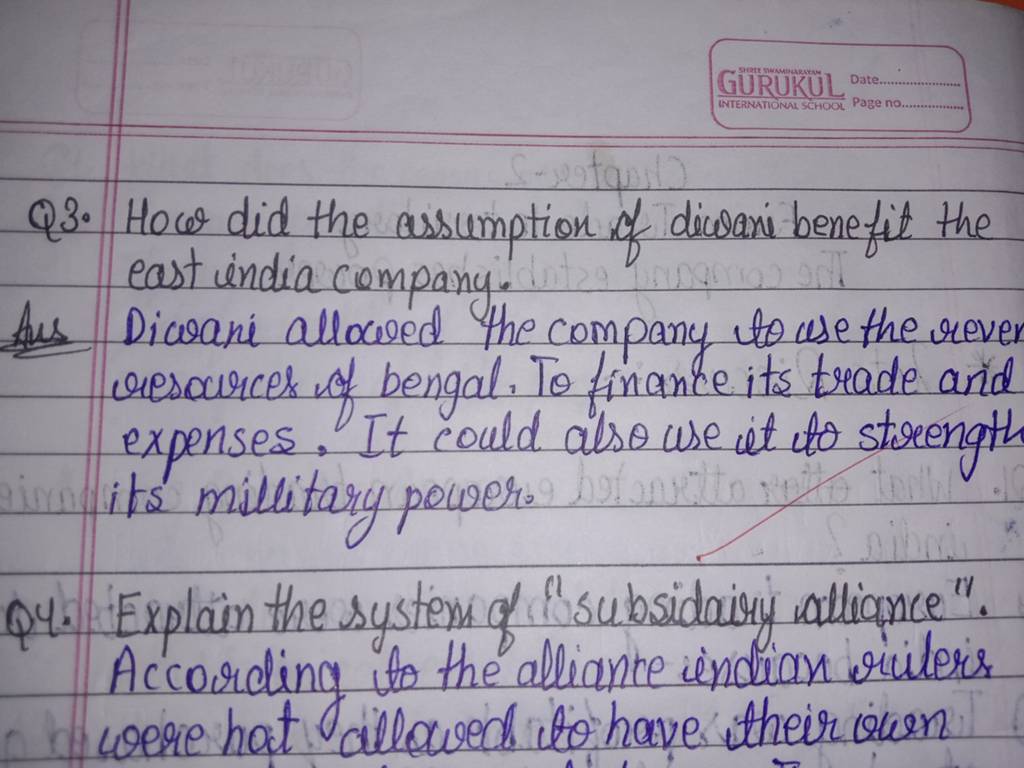 SHREE SWAMINARAYAN
GURUKUL
INTERNATIONAL SCHOOL
Date....................
Page no................
Q3. How did the assumption of diwani benefit the
east india company.
Ans Diwani allowed the company to use the reven
resources of bengal. To finance its trade and
expenses. It could also use it to strength
its millitary power.
Q4. Explain the system of "subsidairy alliance".
According to the alliance indian rulers
were not allowed to have their own